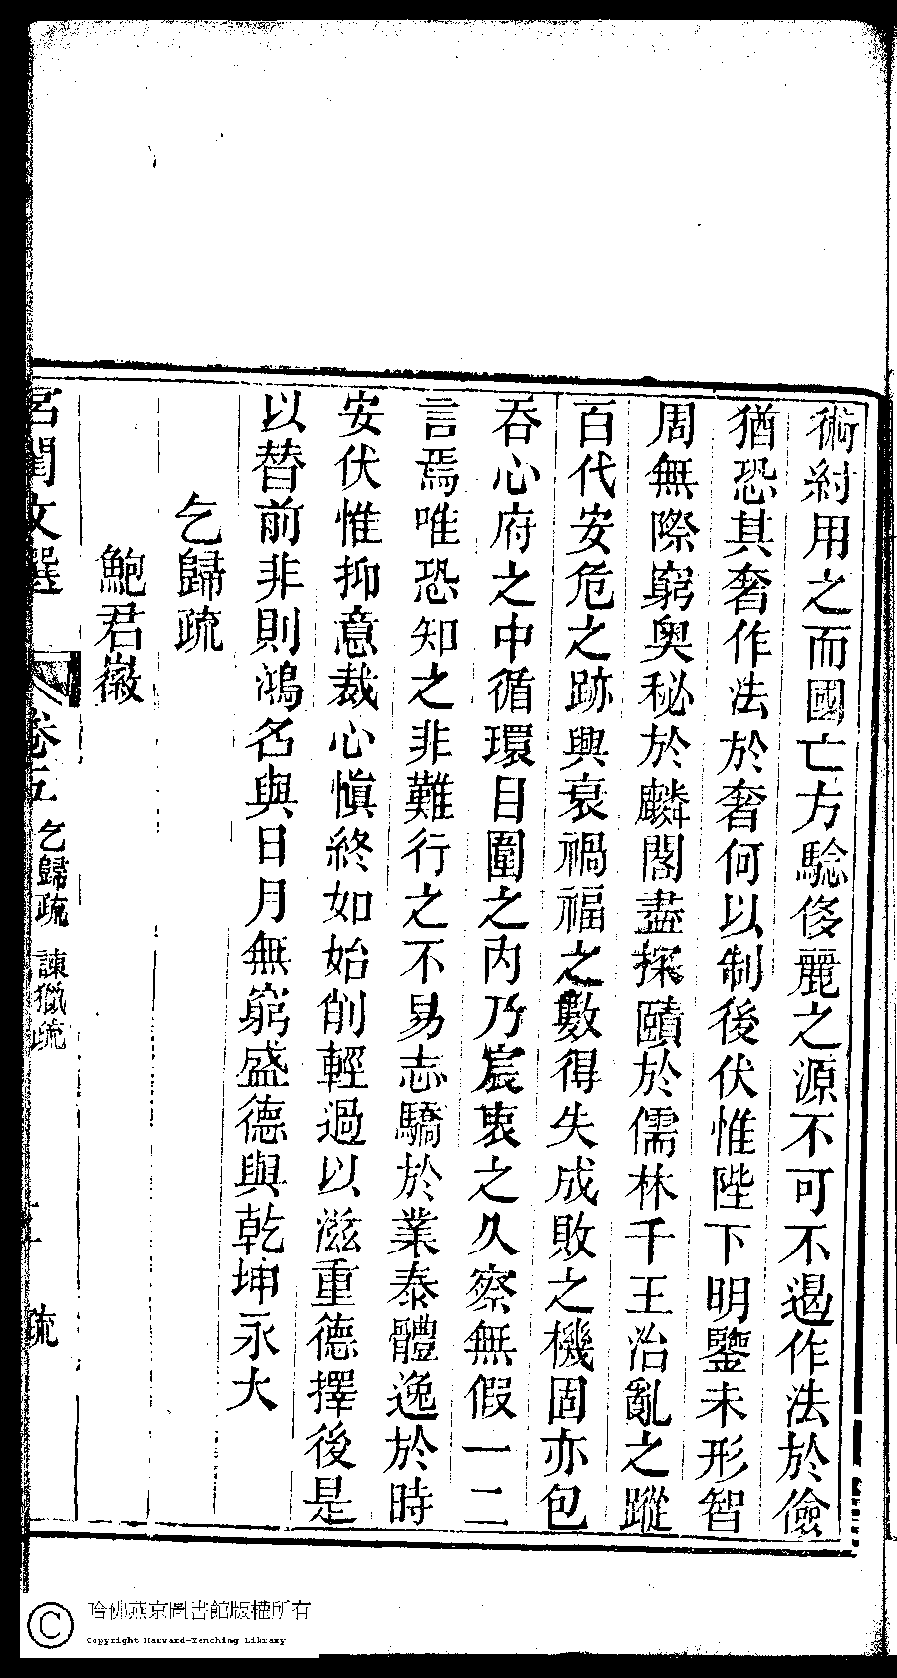 術紂用之而國亡方驗侈麗之源不可不遏作法於儉
猶恐其奢作法於奢何以制後伏惟陛下明鑒未形智
周無際窮奧秘於麟閣盡探賾於儒林千王治亂之蹤
百代安危之跡興衰禍福之數得失成敗之機固亦包
吞心府之中循環目圍之內乃宸衷之久察無假一二
言焉唯恐知之非難行之不易志驕於業泰體逸於時
安伏惟抑意裁心慎終如始削輕過以滋重德擇後是
以替前非則鴻名與日月無窮盛德與乾坤永大
乞歸疏
鮑君徽
宮閨文選 卷五 乞歸疏 諫獵疏 疏
哈佛燕京圖書館版權所有
Copyright Harvard-Yenching Library